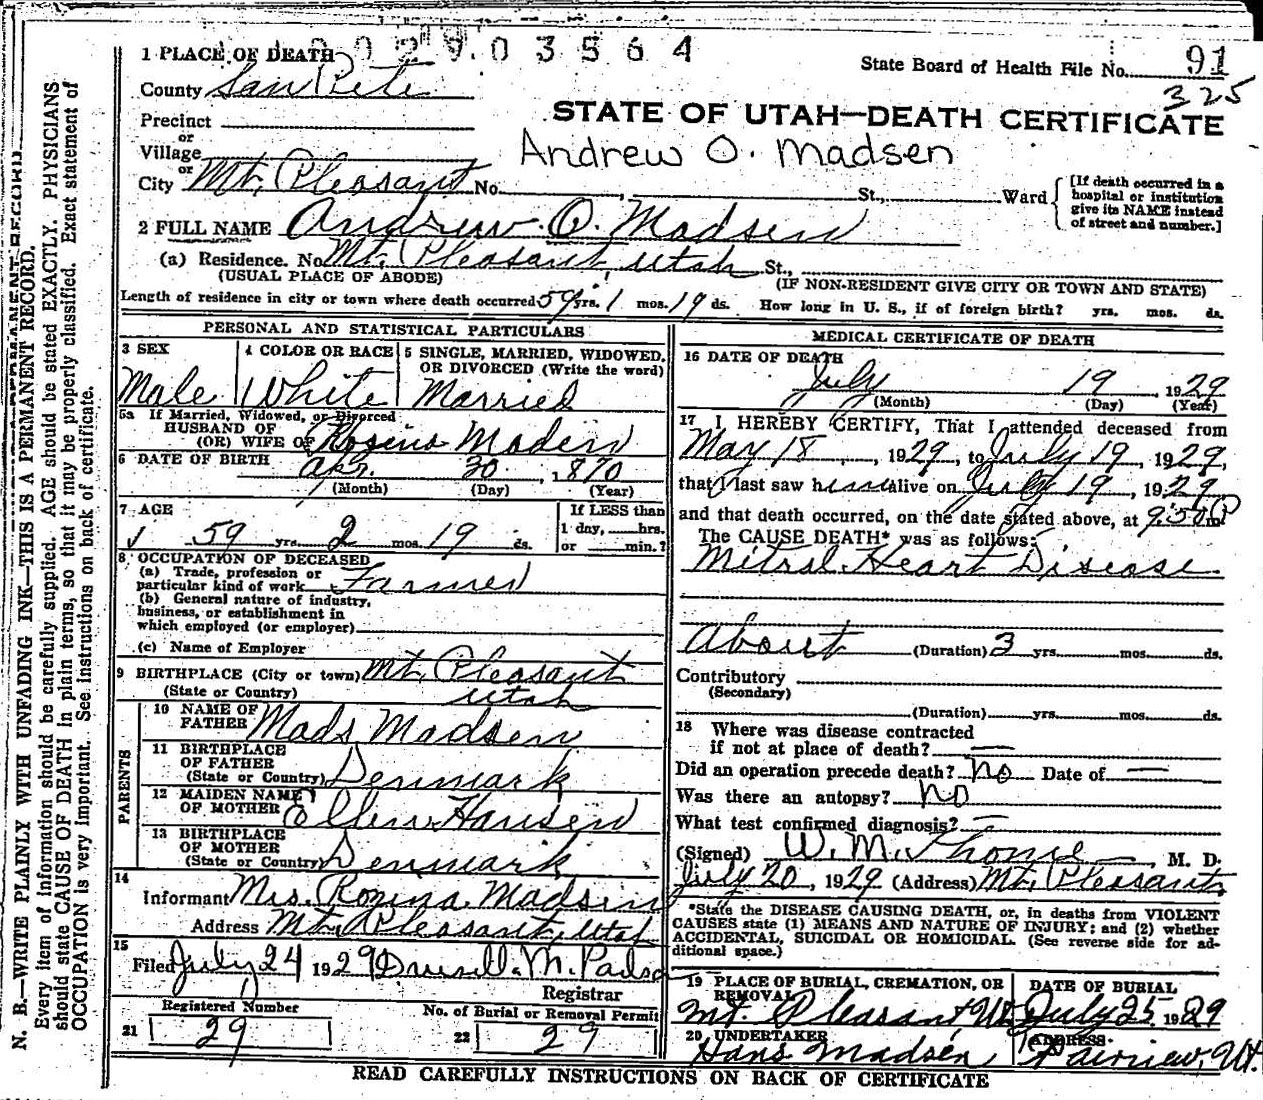 002903564
1 PLACE OF DEATH
State Board of Health File No. 91
325
County San Pete
STATE OF UTAH—DEATH CERTIFICATE
Precinct
or
Village
Andrew O. Madsen
or
City Mt. Pleasant No. , St., Ward
[If death occurred in a hospital or institution give its NAME instead of street and number.]
2 FULL NAME Andrew. O. Madsen
(a) Residence. No. Mt. Pleasant, Utah St.,
(USUAL PLACE OF ABODE) (IF NON-RESIDENT GIVE CITY OR TOWN AND STATE)
Length of residence in city or town where death occurred 59 yrs. 1 mos. 19 ds. How long in U. S., if of foreign birth? yrs. mos. ds.
PERSONAL AND STATISTICAL PARTICULARS
3 SEX
Male
4 COLOR OR RACE
White
5 SINGLE, MARRIED, WIDOWED, OR DIVORCED (Write the word)
Married
5a If Married, Widowed, or Divorced
HUSBAND OF
(OR) WIFE OF Rosina Madsen
6 DATE OF BIRTH Apr. 30, 1870
(Month) (Day) (Year)
7 AGE
59 yrs. 2 mos. 19 ds.
If LESS than
1 day, hrs.
or min.?
8 OCCUPATION OF DECEASED
(a) Trade, profession or
particular kind of work Farmer
(b) General nature of industry,
business, or establishment in
which employed (or employer)
(c) Name of Employer
9 BIRTHPLACE (City or town) Mt. Pleasant
(State or Country) Utah
PARENTS
10 NAME OF
FATHER Mads Madsen
11 BIRTHPLACE
OF FATHER
(State or Country) Denmark
12 MAIDEN NAME
OF MOTHER Ellen Hansen
13 BIRTHPLACE
OF MOTHER
(State or Country) Denmark
14
Informant Mrs. Rozina Madsen
Address Mt. Pleasant, Utah
15
Filed July 24 1929 M.
Registrar
Registered Number
21 29
No. of Burial or Removal Permit
22 29
MEDICAL CERTIFICATE OF DEATH
16 DATE OF DEATH
July 19, 1929
(Month) (Day) (Year)
17 I HEREBY CERTIFY, That I attended deceased from
May 18, 1929, to July 19, 1929,
that I last saw him alive on July 19, 1929
and that death occurred, on the date stated above, at 9:50 P m
The CAUSE DEATH* was as follows:
Mitral Heart Disease
About (Duration) 3 yrs. mos. ds.
Contributory
(Secondary)
(Duration) yrs. mos. ds.
18 Where was disease contracted
if not at place of death? —
Did an operation precede death? no Date of —
Was there an autopsy? no
What test confirmed diagnosis? —
(Signed) W. M. , M. D.
July 20, 1929 (Address) Mt. Pleasant,
*State the DISEASE CAUSING DEATH, or, in deaths from VIOLENT
CAUSES state (1) MEANS AND NATURE OF INJURY; and (2) whether
ACCIDENTAL, SUICIDAL OR HOMICIDAL. (See reverse side for ad-
ditional space.)
19 PLACE OF BURIAL, CREMATION, OR
REMOVAL
Mt. Pleasant, Ut.
DATE OF BURIAL
July 25 1929
20 UNDERTAKER
Hans Madsen
ADDRESS
Fairview, Ut.
READ CAREFULLY INSTRUCTIONS ON BACK OF CERTIFICATE
N. B.—WRITE PLAINLY WITH UNFADING INK—THIS IS A PERMANENT RECORD.
Every item of information should be carefully supplied. AGE should be stated EXACTLY. PHYSICIANS
should state CAUSE OF DEATH in plain terms, so that it may be properly classified. Exact statement of
OCCUPATION is very important. See instructions on back of certificate.